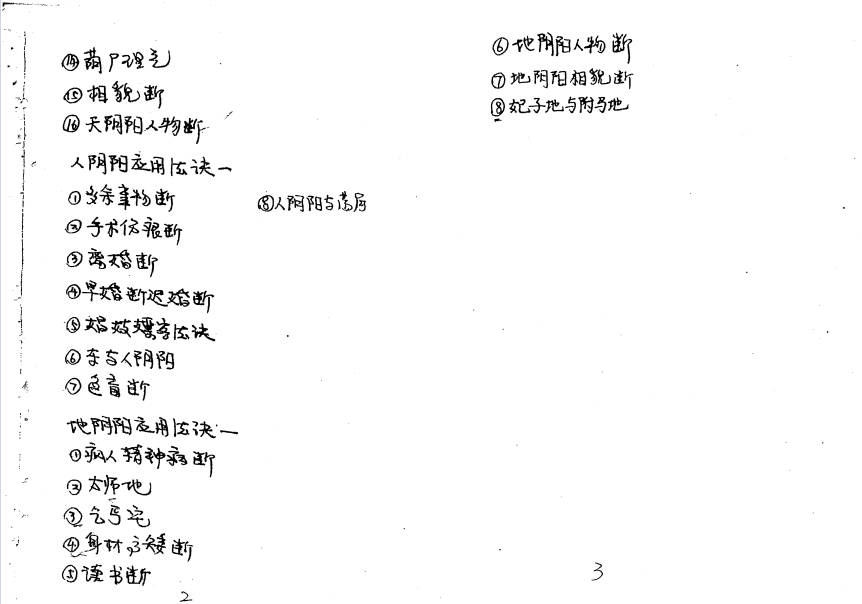 ⑭葫芦理气
⑮相貌断
⑯天阴阳人物断
人阴阳应用法诀一
①多余事物断
②手术伤痕断
③离婚断
④早婚断迟婚断
⑤娼妓嫖客法诀
⑥车与人阴阳
⑦色盲断
⑧人阴阳与荡局
地阴阳应用法诀一
①病人精神病断
②太师地
③乞丐宅
④身材高矮断
⑤读书断
2
⑥地阴阳人物断
⑦地阴阳相貌断
⑧妃子地与附马地
3